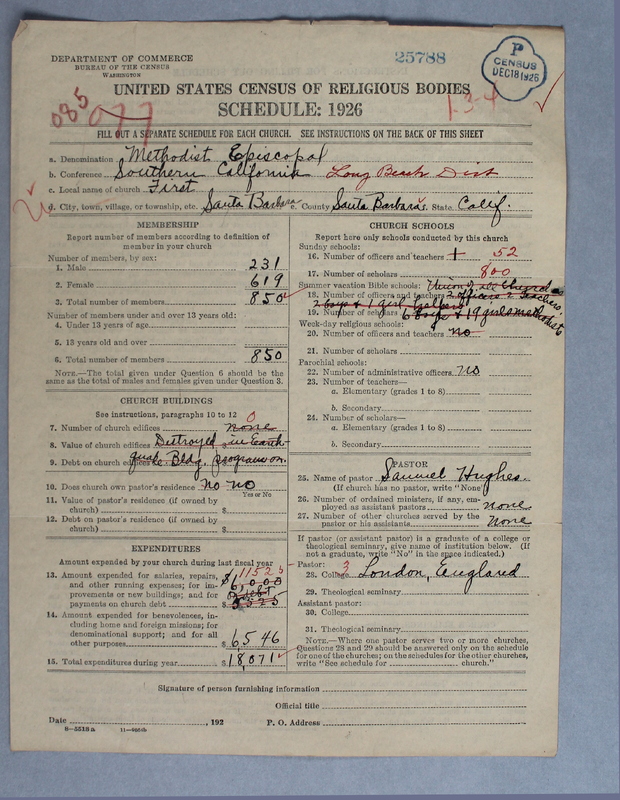 DEPARTMENT OF COMMERCE
BUREAU OF THE CENSUS
WASHINGTON
25788
P
CENSUS
DEC 18 1926
UNITED STATES CENSUS OF RELIGIOUS BODIES
SCHEDULE: 1926
085
077
1-3-4
FILL OUT A SEPARATE SCHEDULE FOR EACH CHURCH. SEE INSTRUCTIONS ON THE BACK OF THIS SHEET
a. Denomination Methodist Episcopal
b. Conference Southern California Long Beach Dist
c. Local name of church First
d. City, town, village, or township, etc. Santa Barbara e. County Santa Barbara State Calif.
MEMBERSHIP
Report number of members according to definition of
member in your church
Number of members, by sex:
1. Male 231
2. Female 619
3. Total number of members 850
Number of members under and over 13 years old:
4. Under 13 years of age
5. 13 years old and over
6. Total number of members 850
NOTE.—The total given under Question 6 should be the
same as the total of males and females given under Question 3.
CHURCH BUILDINGS
See instructions, paragraphs 10 to 12 0
7. Number of church edifices none
8. Value of church edifices Destroyed in Earth-
9. Debt on church edifices quake Bldg. program on.
10. Does church own pastor's residence? no no
Yes or No
11. Value of pastor's residence (if owned by
church) $
12. Debt on pastor's residence (if owned by
church) $
EXPENDITURES
Amount expended by your church during last fiscal year
11525
13. Amount expended for salaries, repairs, $6,000
and other running expenses; for im-
provements or new buildings; and for debt
payments on church debt $5525
14. Amount expended for benevolences, in-
cluding home and foreign missions; for
denominational support; and for all
other purposes $6,546
15. Total expenditures during year $18,071
CHURCH SCHOOLS
Report here only schools conducted by this church
Sunday schools:
16. Number of officers and teachers 52
17. Number of scholars 800
Summer vacation Bible schools: Union of all Churches
18. Number of officers and teachers 2 officers 2 teachers,
2 boys & 1 girl helpers
19. Number of scholars 6 boys & 19 girls methodists
Week-day religious schools:
20. Number of officers and teachers no
21. Number of scholars
Parochial schools:
22. Number of administrative officers no
23. Number of teachers—
a. Elementary (grades 1 to 8)
b. Secondary
24. Number of scholars—
a. Elementary (grades 1 to 8)
b. Secondary
PASTOR
25. Name of pastor Samuel Hughes
(If church has no pastor, write "None")
26. Number of ordained ministers, if any, em-
ployed as assistant pastors none
27. Number of other churches served by the
pastor or his assistants None
If pastor (or assistant pastor) is a graduate of a college or
theological seminary, give name of institution below. (If
not a graduate, write "No" in the space indicated.)
Pastor: 3
28. College London, England
29. Theological seminary
Assistant pastor:
30. College
31. Theological seminary
NOTE.—Where one pastor serves two or more churches,
Questions 28 and 29 should be answered only on the schedule
for one of the churches; on the schedules for the other churches,
write "See schedule for church."
Signature of person furnishing information
Official title
Date , 192 P. O. Address
8—5518 a